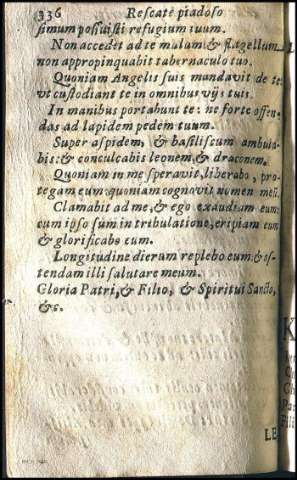 336 Rescate piadoso
simum posuisti refugium tuum.
Non accedet ad te malum & flagellum
non appropinquabit tabernaculo tuo.
Quoniam Angelis suis mandavit de te:
vt custodiant te in omnibus vijs tuis.
In manibus portabunt te: ne forte offen-
das ad lapidem pedem tuum.
Super aspidem, & basiliscum ambula-
bis: & conculcabis leonem, & draconem.
Quoniam in me speravit, liberabo, pro-
tegam eum: quoniam cognovit nomen meũ.
Clamabit ad me, & ego exaudiam eum:
cum ipso sum in tribulatione, eripiam eum
& glorificabo eum.
Longitudine dierum replebo eum: & os-
tendam illi salutare meum.
Gloria Patri, & Filio, & Spiritui Sancto,
&c.
LE